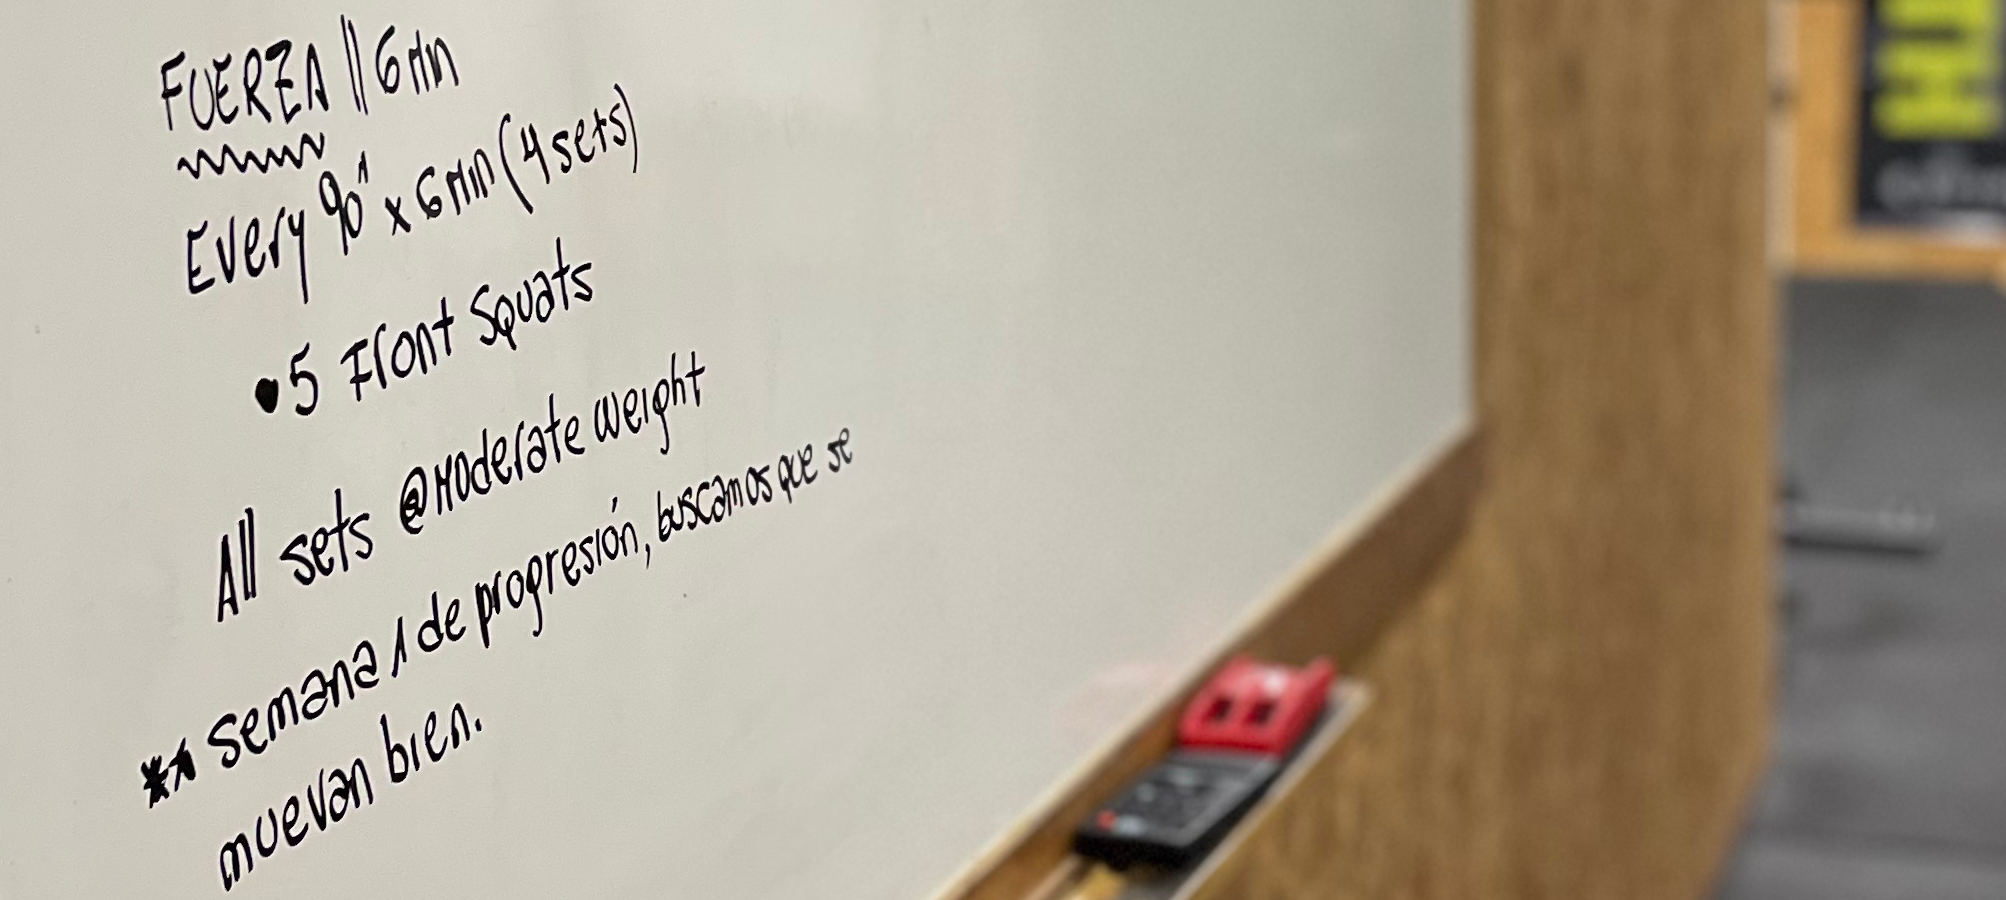 FUERZA || 6 min
Every 90" x 6 min (4 sets)
• 5 Front Squats
All sets @moderate weight
** semana 1 de progresión, buscamos que se
muevan bien.